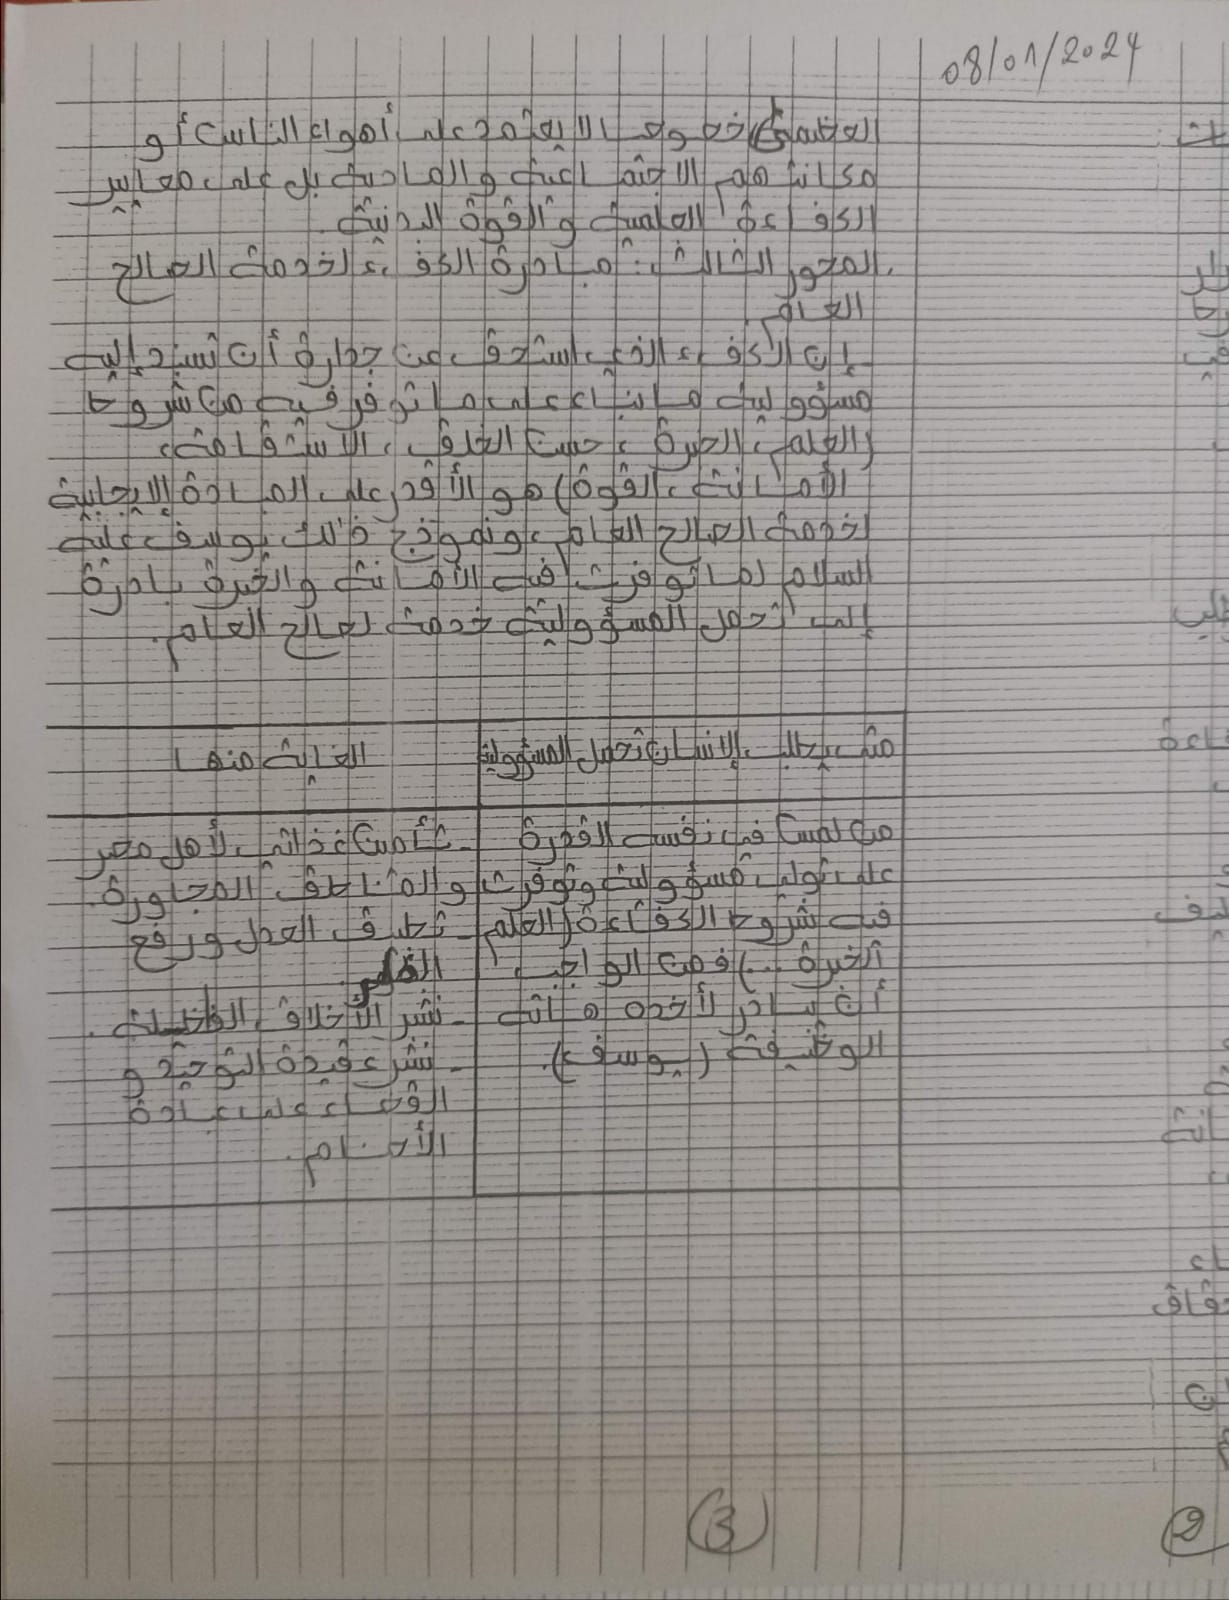 08/01/2024
العظمى فهو لا يعتمد على أهواء الناس أو
مكانتهم الاجتماعية والمادية بل على معايير
الكفاءة العلمية والقوة البدنية.
المحور الثالث: مبادرة الكفء لخدمة الصالح
العام
إن الكفء الذي استحق عن جدارة أن تسند إليه
مسؤولية ما بناء على ما توفر فيه من شروط
(العلم، الخبرة، حسن الخلق، الاستقامة،
الأمانة، القوة) هو الأقدر على المبادرة الإيجابية
لخدمة الصالح العام، ونموذج ذلك يوسف عليه
السلام لما توفرت فيه الأمانة والخبرة بادرة
إلى تحمل المسؤولية خدمة لصالح العام.
متى يطلب الإنسان تحمل المسؤولية
الغاية منها
من لمس في نفسه القدرة
على تولي مسؤولية وتوفرت
فيه شروط الكفاءة (العلم
الخبرة ...) فمن الواجب
أن يبادر لأخده هاته
الوظيفة (يوسف).
- تأمين غذائي لأهل مصر
والمناطق المجاورة.
- تطبيق العدل ورفع
الظلم
- نشر الأخلاق الفاضلة.
- نشر عقيدة التوحيد و
القضاء على عبادة
الأصنام.
3
2